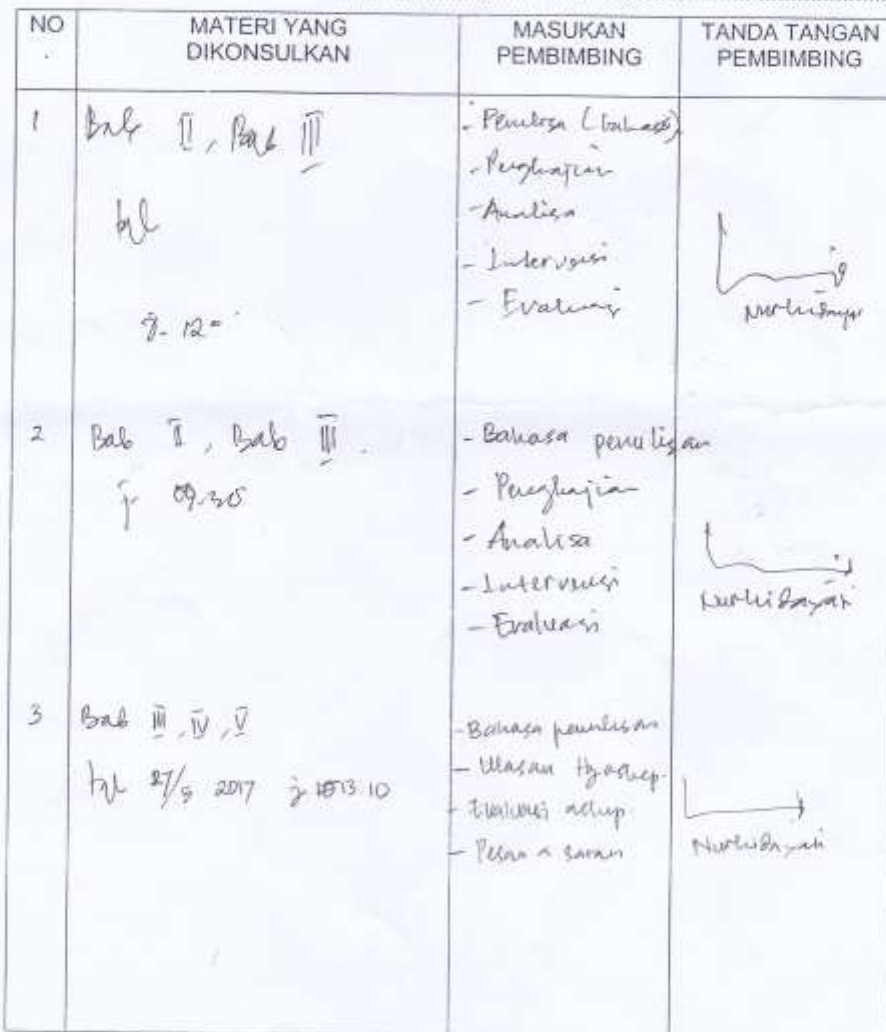 NO
.
MATERI YANG
DIKONSULKAN
MASUKAN
PEMBIMBING
TANDA TANGAN
PEMBIMBING
1
Bab II, Bab III
tgl
- Pengkajian
- Analisa
- Intervensi
- Evaluasi
Nurhidayati
2
Bab II, Bab III.
j. 09.30
- Bahasa penulisan
- Pengkajian
- Analisa
- Intervensi
- Evaluasi
Nurhidayati
3
Bab III, IV, V
tgl 27/5 2017 j 13.10
- Bahasa penulisan
- Ulasan
- Evaluasi askep.
- Pesan & saran
Nurhidayati